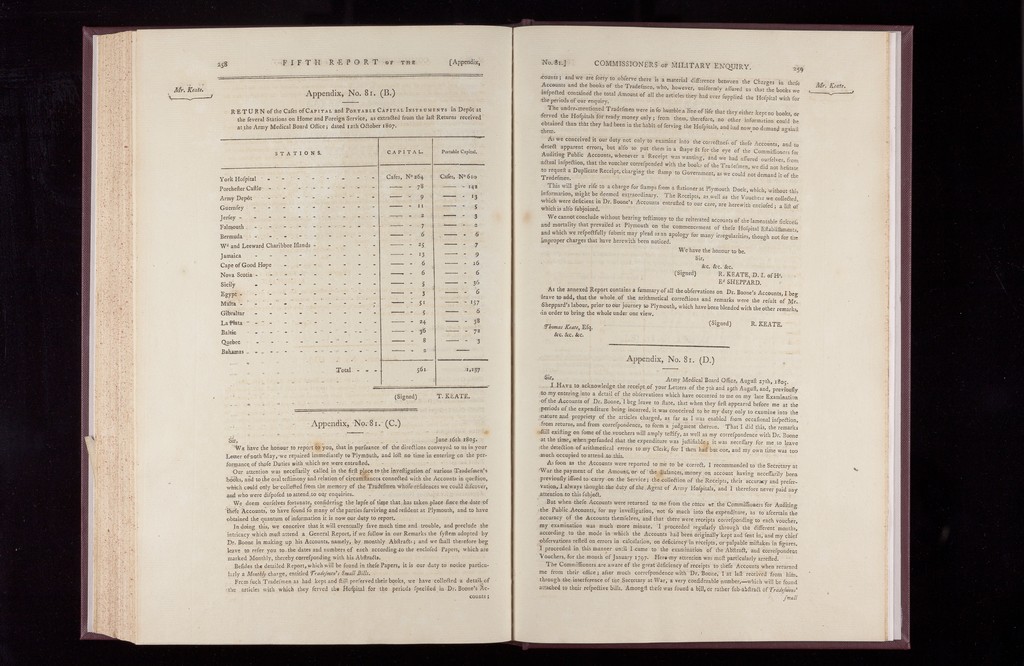 258 FIFTH REPORT OF THE [Appendix,
Mr. Keate.
Appendix, No. 81. (B.)
RETURN of the Cases of CAPITAL and PORTABLE CAPITAL INSTRUMENTS in Depôt at
the several Stations on Home and Foreign Service, as extracted from the last Returns received
at the Army Medical Board Office; dated 12th October 1807.
STATIONS. CAPITAL. Portable Capital.
Cases, Nº 264 Cases, Nº 610
York Hospital
Porchester Castle - 78 - 142
Army Depôt - 9 - 13
Guernsey - 11 - 5
Jersey - 2 - 8
Falmouth - 7 - 2
Bermuda - 6 - 6
Wd and Leeward Charibbee Islands - 25 - 7
Jamaica - 13 - 9
Cape of Good Hope - 6 - 16
Nova Scotia - 6 - 6
Sicily - 5 - 36
Egypt - 3 - 6
Malta - 51 - 157
Gibraltar - 5 - 6
La Plata - 24 - 38
Baltic - 36 - 72
Quebec - 8 - 3
Bahamas - 2
Total - - - 561 1,137
(Signed) T. KEATE.
Appendix, No. 81. (C.)
Sir, June 16th 1803.
We have the honour to report to you, that in pursuance of the directions conveyed to us in your
Letter of 20th May, we repaired immediately to Plymouth, and lost no time in entering on the per-
formance of those Duties with which we were entrusted.
Our attention was necessarily called in the first place to the investigation of various Tradesmen's
books, and to the oral testimony and relation of circumstances connected with the Accounts in question,
which could only be collected from the memory of the Tradesmen whose residences we could discover,
and who were disposed to attend to our enquiries.
We deem ourselves fortunate, considering the lapse of time that has taken place since the date of
these Accounts, to have found so many of the parties surviving and resident at Plymouth, and to have
obtained the quantum of information it is now our duty to report.
In doing this, we conceive that it will eventually save much time and trouble, and preclude the
intricacy which must attend a General Report, if we follow in our Remarks the system adopted by
Dr. Boone in making up his Accounts, namely, by monthly Abstracts; and we shall therefore beg
leave to refer you to the dates and numbers of each according to the enclosed Papers, which are
marked Monthly, thereby corresponding with his Abstracts.
Besides the detailed Report, which will be found in these Papers, it is our duty to notice particu-
larly a Monthly charge, entitled Tradesmen's Small Bills.
From such Tradesmen as had kept and still preserved their books, we have collected a detail of
the articles with which they served the Hospital for the periods specified in Dr. Boone's Ac-
counts;
No. 81.] COMMISSIONERS OF MILITARY ENQUIRY. 259
Mr. Keate.
counts; and we are sorry to observe there is a material difference between the Charges in these
Accounts and the books of the Tradesmen, who, however, uniformly assured us that the books we
inspected contained the total Amount of all the articles they had ever supplied the Hospital with for
the periods of our enquiry.
The under-mentioned Tradesmen were in so humble a line of life that they either kept no books, or
served the Hospitals for ready money only; from them, therefore, no other information could be
obtained than that they had been in the habit of serving the Hospitals, and had now no demand against
them.
As we conceived it our duty not only to examine into the correctness of these Accounts, and to
detect apparent errors, but also to put them in a shape fit for the eye of the Commissioners for
Auditing Public Accounts, whenever a Receipt was wanting, and we had assured ourselves, from
actual inspection, that the voucher corresponded with the books of the Tradesmen, we did not hesitate
to request a Duplicate Receipt, charging the stamp to Government, as we could not demand it of the
Tradesmen.
This will give rise to a charge for stamps from a Stationer at Plymouth Dock, which, without this
information, might be deemed extraordinary. The Receipts, as well as the Vouchers we collected,
which were deficient in Dr. Boone's Accounts entrusted to our care, are herewith enclosed; a list of
which is also subjoined.
We cannot conclude without bearing testimony to the reiterated accounts of the lamentable sickness
and mortality that prevailed at Plymouth on the commencement of their Hospital Establishments,
and which we respectfully submit may plead as an apology for many irregularities, though not for the
improper charges that have herewith been noticed.
We have the honour to be,
Sir,
&c. &c. &c.
(Signed) R. KEATE, D. I. of Hs.
Ed SHEPPARD.
As the annexed Report contains a summary of all the observations on Dr. Boone's Accounts, I beg
leave to add, that the whole of the arithmetical corrections and remarks were the result of Mr.
Sheppard's labour, prior to our journey to Plymouth, which have been blended with the other remarks,
in order to bring the whole under one view.
(Signed) R. KEATE.
Thomas Keate, Esq.
&c. &c. &c.
Appendix, No. 81. (D.)
Sir, Army Medical Board Office, August 27th, 1803.
I HAVE to acknowledge the receipt of your Letters of the 7th and 19th August, and, previously
to my entering into a detail of the observations which have occurred to me on my late Examination
of the Accounts of Dr. Boone, I beg leave to state, that when they first appeared before me at the
periods of the expenditure being incurred, it was conceived to be my duty only to examine into the
nature and propriety of the articles charged, as far as I was enabled from occasional inspection,
from returns, and from correspondence, to form a judgment thereon. That I did this, the remarks
still existing on some of the vouchers will amply testify, as well as my correspondence with Dr. Boone
at the time, when persuaded that the expenditure was justifiable; it was necessary for me to leave
the detection of arithmetical errors to my Clerk, for I then had but one, and my own time was too
much occupied to attend to this.
As soon as the Accounts were reported to me to be correct, I recommended to the Secretary at
War the payment of the Amount, or of the Balances, money on account having necessarily been
previously issued to carry on the Service; the collection of the Receipts, their accuracy and preser-
vation, I always thought the duty of the Agent of Army Hospitals, and I therefore never paid any
attention to this subject.
But when these Accounts were returned to me from the office of the Commissioners for Auditing
the Public Accounts, for my investigation, not so much into the expenditure, as to ascertain the
accuracy of the Accounts themselves, and that there were receipts corresponding to each voucher,
my examination was much more minute. I proceeded regularly through the different months,
according to the mode in which the Accounts had been originally kept and sent in, and my chief
observations rested on errors in calculation, on deficiency in receipts, or palpable mistakes in figures.
I proceeded in this manner until I came to the examination of the Abstract, and correspondent
Vouchers, for the month of January 1797. Here my attention was most particularly arrested.
The Commissioners are aware of the great deficiency of receipts to these Accounts when returned
me from their office; after much correspondence with Dr. Boone, I at last received from him,
through the interference of the Secretary at War, a very considerable number,—which will be found
attached to their respective bills. Amongst these was found a bill, or rather sub-abstract of Tradesmens'
small